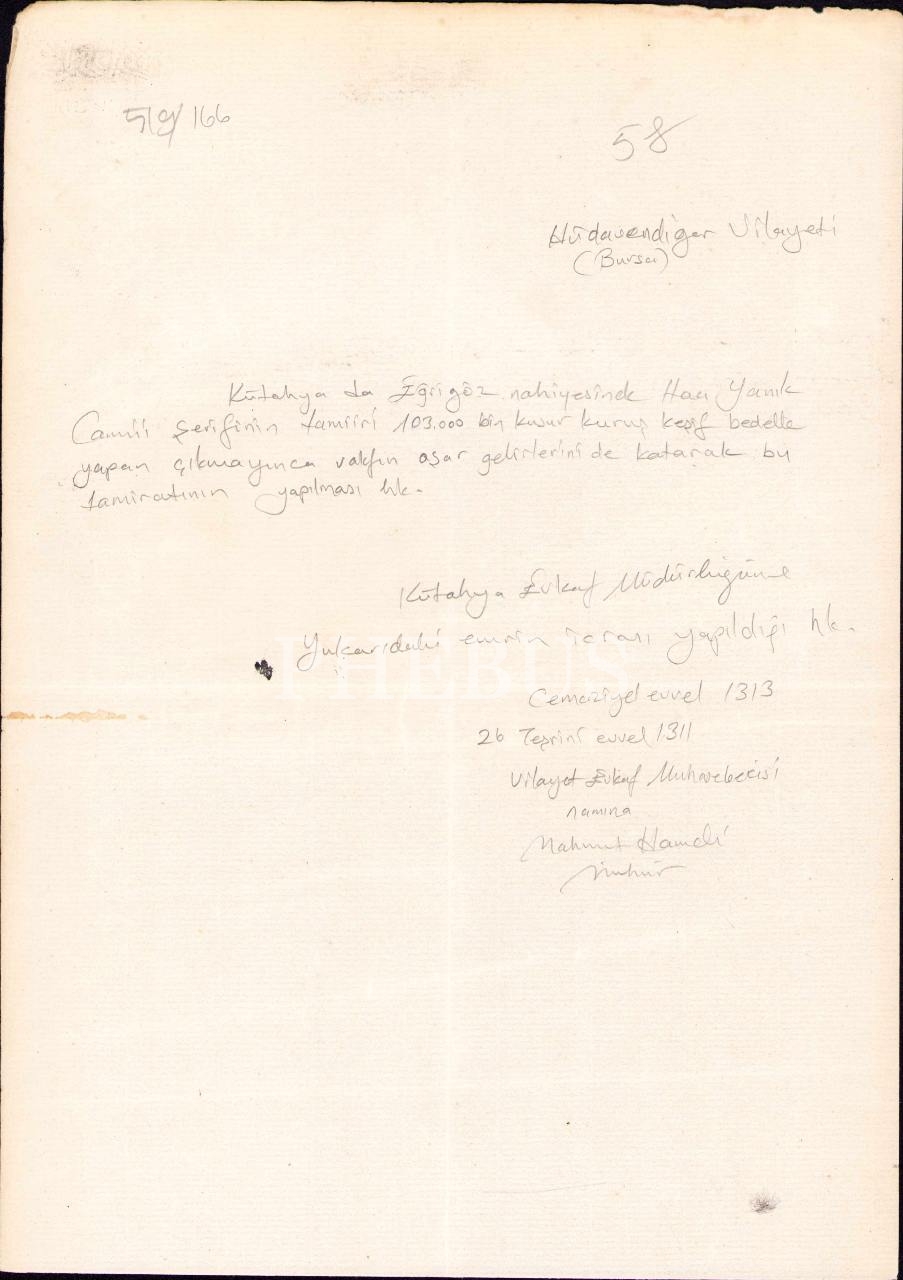 519/166
58
Hüdavendigar Vilayeti
(Bursa)
Kütahya da Eğrigöz nahiyesinde Hacı Yanık
Camii Şerifinin tamiiri 103.000 bin kusur kuruş keşif bedelle
yapan çıkmayınca vakfın aşar gelirlerini de katarak bu
tamiratının yapılması hk.
Kütahya Evkaf Müdürlüğüne
Yukarıdaki emrin icrası yapıldığı hk.
PHEBUS
Cemaziyel evvel 1313
26 Teşrini evvel 1311
Vilayet Evkaf Muhasebecisi
namına
Mahmut Hamdi
Mühür